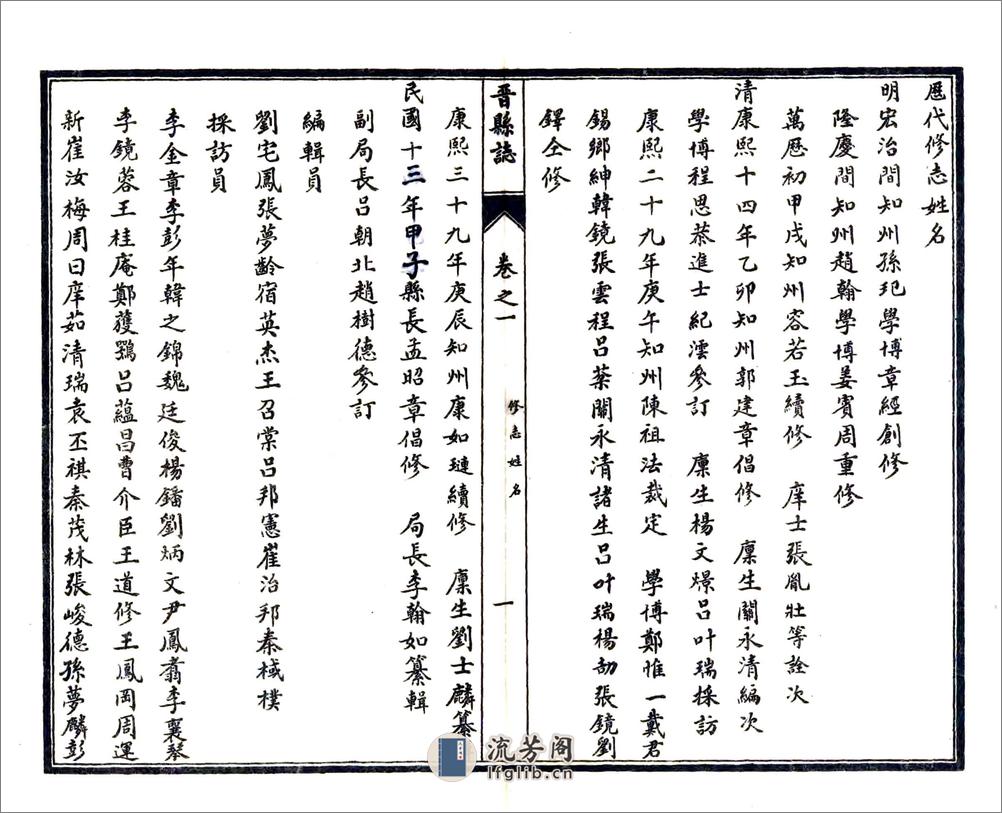 歷代修志姓名
明宏治間知州孫玘學博章經創修
隆慶間知州趙翰學博姜賓周重修
萬歷初甲戌知州容若玉續修　庠士張胤壯等詮次
清康熙十四年乙卯知州郭建章倡修　廩生關永清編次
學博程思恭進士紀澐參訂　廩生楊文㬌呂叶瑞採訪
康熙二十九年庚午知州陳祖法裁定　學博鄭惟一戴君
錫鄉紳韓鏡張雲程呂葉關永清諸生呂叶瑞楊劼張鏡劉
鐸仝修
晉縣誌
卷之一
修志姓名
一
康熙三十九年庚辰知州康如璉續修　廩生劉士麟纂
民國十三年甲子縣長孟昭章倡修　局長李翰如纂輯
副局長呂朝北趙樹德參訂
編輯員
劉宅鳳張夢齡宿英杰王召棠呂邦憲崔治邦秦棫樸
採訪員
李金章李彭年韓之錦魏廷俊楊鐇劉炳文尹鳳翥李襄琴
李鏡蓉王桂庵鄭蒦鶚呂蘊昌曹介臣王道修王鳳岡周運
新崔汝梅周日庠茹清瑞袁丕祺秦茂林張峻德孫夢麟彭
流芳阁
lfglib.cn